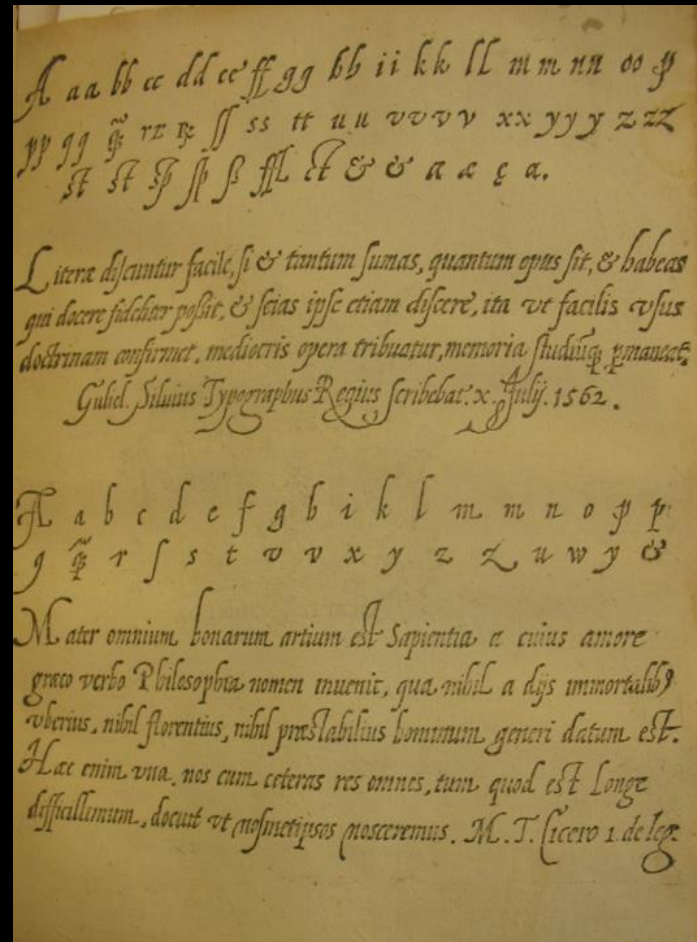 A aa bb cc dd ee ff gg hh ii kk ll m m nn oo p
pp q q q̃ rr ſſ ss tt u u v v v v x x y y y z zz
st st sp ſp ß ffl ct & & a æ ę a.
Literæ diſcuntur facile, ſi & tantum ſumas, quantum opus ſit, & habeas
qui docere fideliter poßit, & ſcias ipſe etiam diſcere, ita vt facilis vſus
doctrinam confirmet. mediocris opera tribuatur, memoria ſtudiūq; p̱maneat;
Guliel. Siluius Typographus Regius ſcribebat. x. Julij. 1562.
A a b c d e f g h i k l m m n o p p
q q̃ r ſ s t v v x y z z u w y &
Mater omnium bonarum artium est Sapientia a cuius amore
græco verbo Philosophia nomen inuenit, qua nihil a dijs immortalibꝰ
vberius, nihil florentius, nihil præstabilius hominum generi datum est.
Hæc enim vna nos cum ceteras res omnes, tum quod est longe
difficillimum, docuit vt noſmetipsos nosceremus. M. T. Cicero 1. de leg.